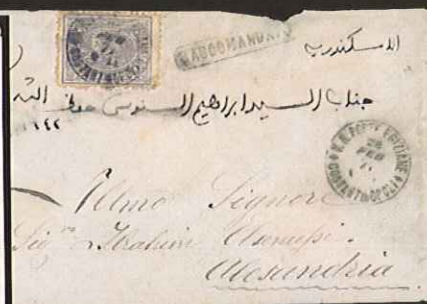 RACCOMANDATA
الاسكندريه
جناب السيد ابراهيم السنوسي
١٤٢
V. R. POSTE EGIZIANE
28
FEB
COSTANTINOPOLI
Illmo Signore
Sigre Ibrahim Elsenussi.
Alessandria